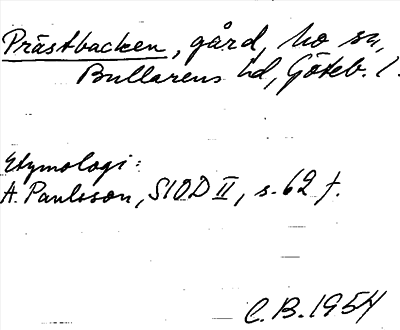 Prästbacken, gård, Mo sn,
Bullarens hd, Göteb. l.
Etymologi:
A. Paulsson, SIOD II, s. 62 f.
C.B. 1954